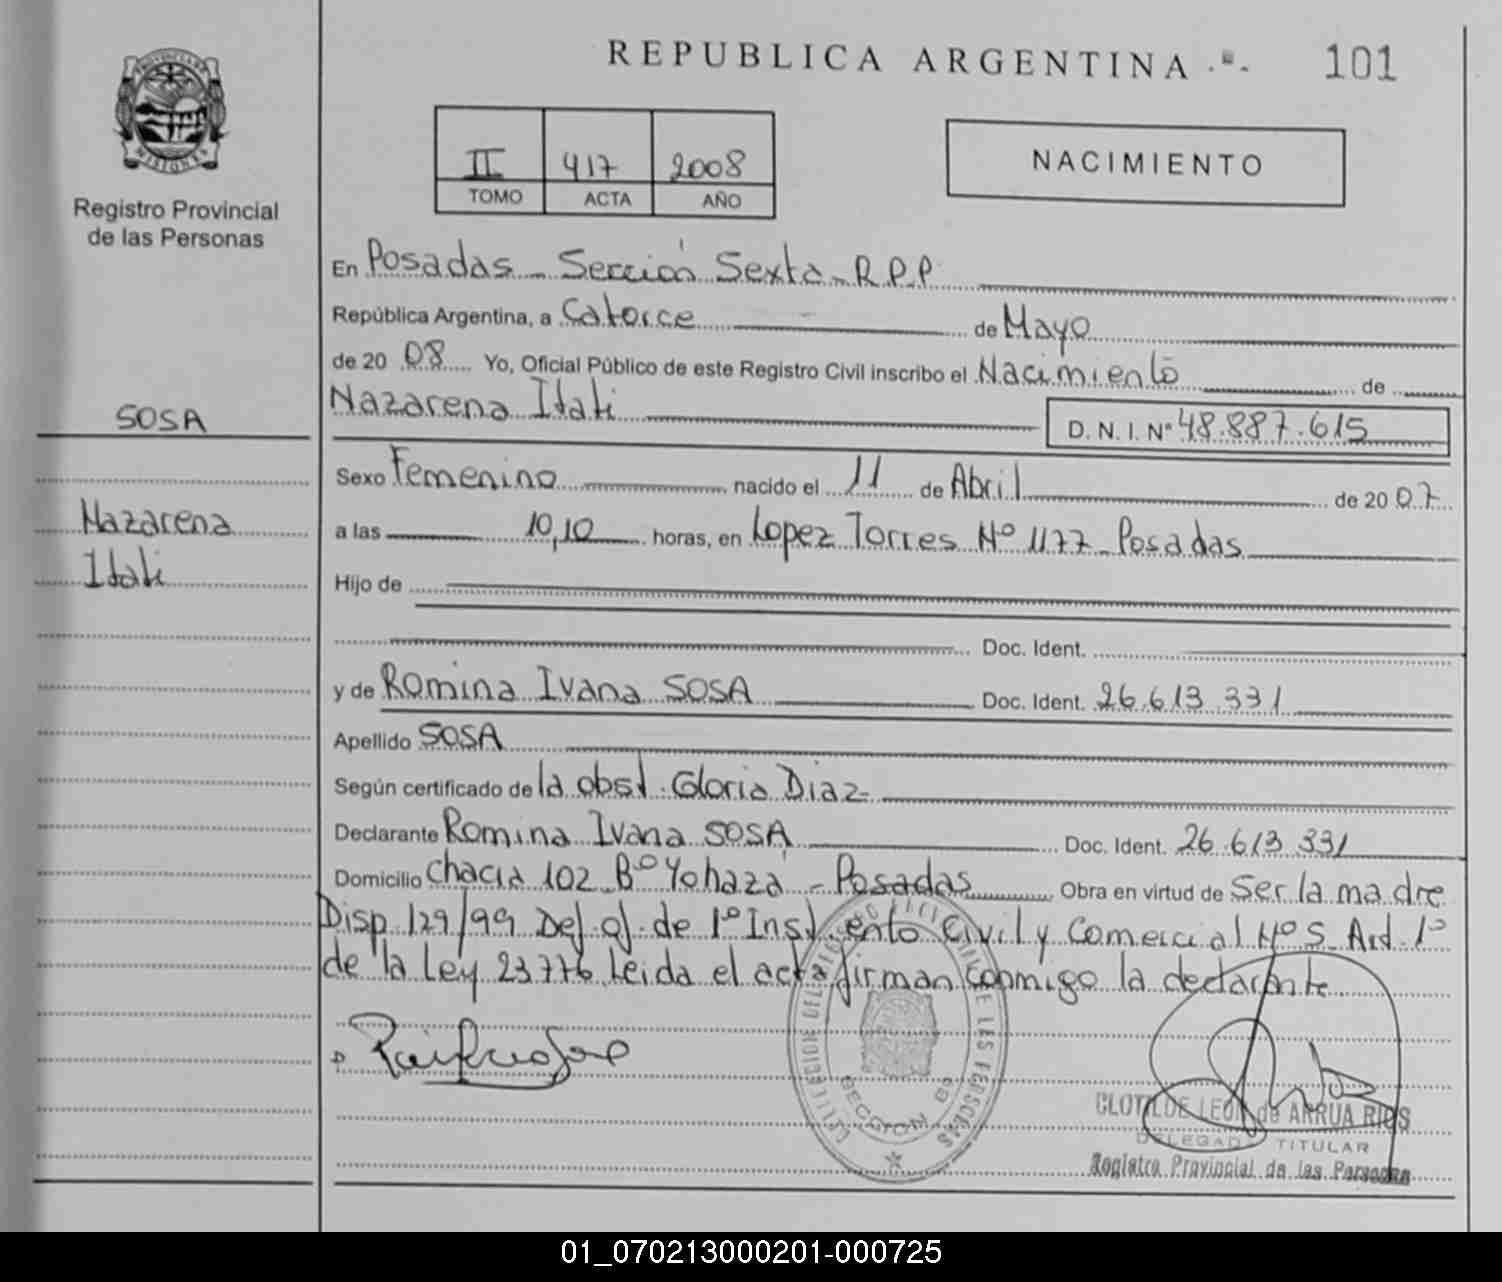 REPUBLICA ARGENTINA
101
PROVINCIA DE
MISIONES
Registro Provincial
de las Personas
II 417 2008
TOMO ACTA AÑO
NACIMIENTO
En Posadas - Sección Sexta - R.P.P.
República Argentina, a Catorce de Mayo
de 20 08 Yo, Oficial Público de este Registro Civil inscribo el Nacimiento de
Nazarena Itati
D. N. I. Nº 48.887.615
SOSA
Nazarena
Itati
Sexo Femenino nacido el 11 de Abril de 20 07
a las 10,10 horas, en Lopez Torres Nº 1177 - Posadas
Hijo de
Doc. Ident.
y de Romina Ivana SOSA Doc. Ident. 26.613.331
Apellido SOSA
Según certificado de la obst. Gloria Diaz
Declarante Romina Ivana SOSA Doc. Ident. 26.613.331
Domicilio Chacra 102 Bº Yohaza - Posadas Obra en virtud de Ser la madre
Disp 129/99 Def. of. de 1º Inst. ento Civil y Comercial Nº 5 Art. 1º
de la Ley 23776 Leida el acta firman conmigo la declarante
SECCION 6ª
CLOTILDE LEON de ARRUA RIOS
DELEGADA TITULAR
Registro Provincial de las Personas
01_070213000201-000725